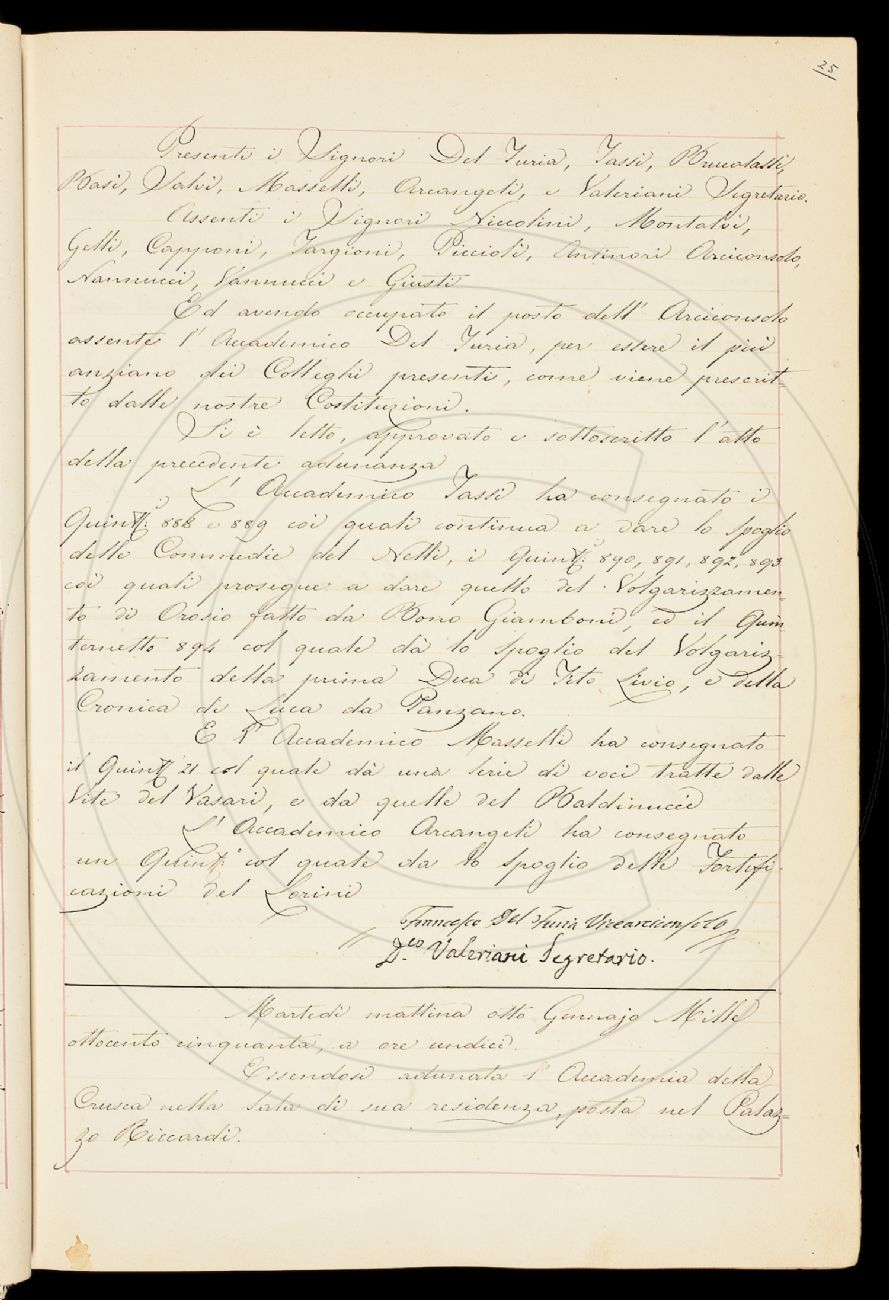 25
Presenti i Signori Del Furia, Tassi, Bruscolassi,
Basi, Salvi, Masselli, Arcangeli, e Valeriani Segretario.
Assenti i Signori Niccolini, Montalvi,
Gelli, Capponi, Targioni, Piccioli, Antinori Arciconsolo,
Nannucci, Vannucci e Giusti
Ed avendo occupato il posto dell' Arciconsolo
assente l' Accademico Del Furia, per essere il più
anziano dei Colleghi presenti, come viene prescrit=
to dalle nostre Costituzioni.
Si è letto, approvato e sottoscritto l'atto
della precedente adunanza
L' Accademico Tassi ha consegnato i
Quint.i 888 e 889 coi quali continua a dare lo spoglio
delle Commedie del Nelli, i Quint.i 890, 891, 892, 893
coi quali prosegue a dare quello del Volgarizzamen=
to di Orosio fatto da Bono Giamboni, ed il Quin
ternetto 894 col quale dà lo spoglio del Volgariz=
zamento della prima Deca di Tito Livio, e della
Cronica di Luca da Panzano.
E l' Accademico Masselli ha consegnato
il Quint.o 21 col quale dà una serie di voci tratte dalle
Vite del Vasari, e da quelle del Baldinucci
L' Accademico Arcangeli ha consegnato
un Quint.o col quale da lo spoglio delle Fortifi=
cazioni del Lorini
Francesco Del Furia Vicearciconsolo
D.co Valeriani Segretario.
Martedì mattina otto Gennajo Mille
ottocento cinquanta, a ore undici.
Essendosi adunata l' Accademia della
Crusca nella sala di sua residenza, posta nel Palaz=
zo Riccardi.